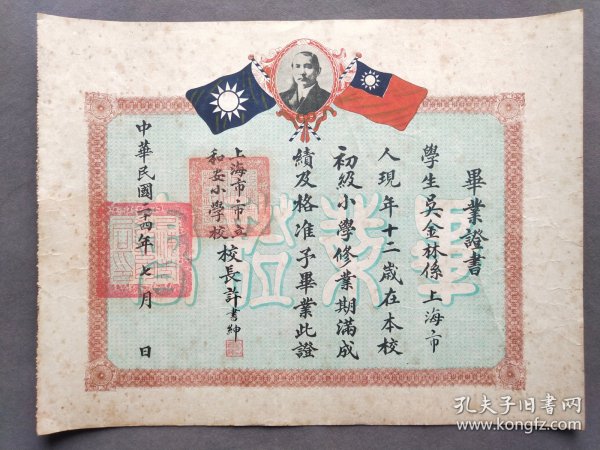 畢業證書
學生吳金林係上海市
人現年十二歲在本校
初級小學修業期滿成
績及格准予畢業此證
上海市市立
和安小學校
校長許書紳
中華民國二十四年七月 日
孔夫子旧书网
www.kongfz.com